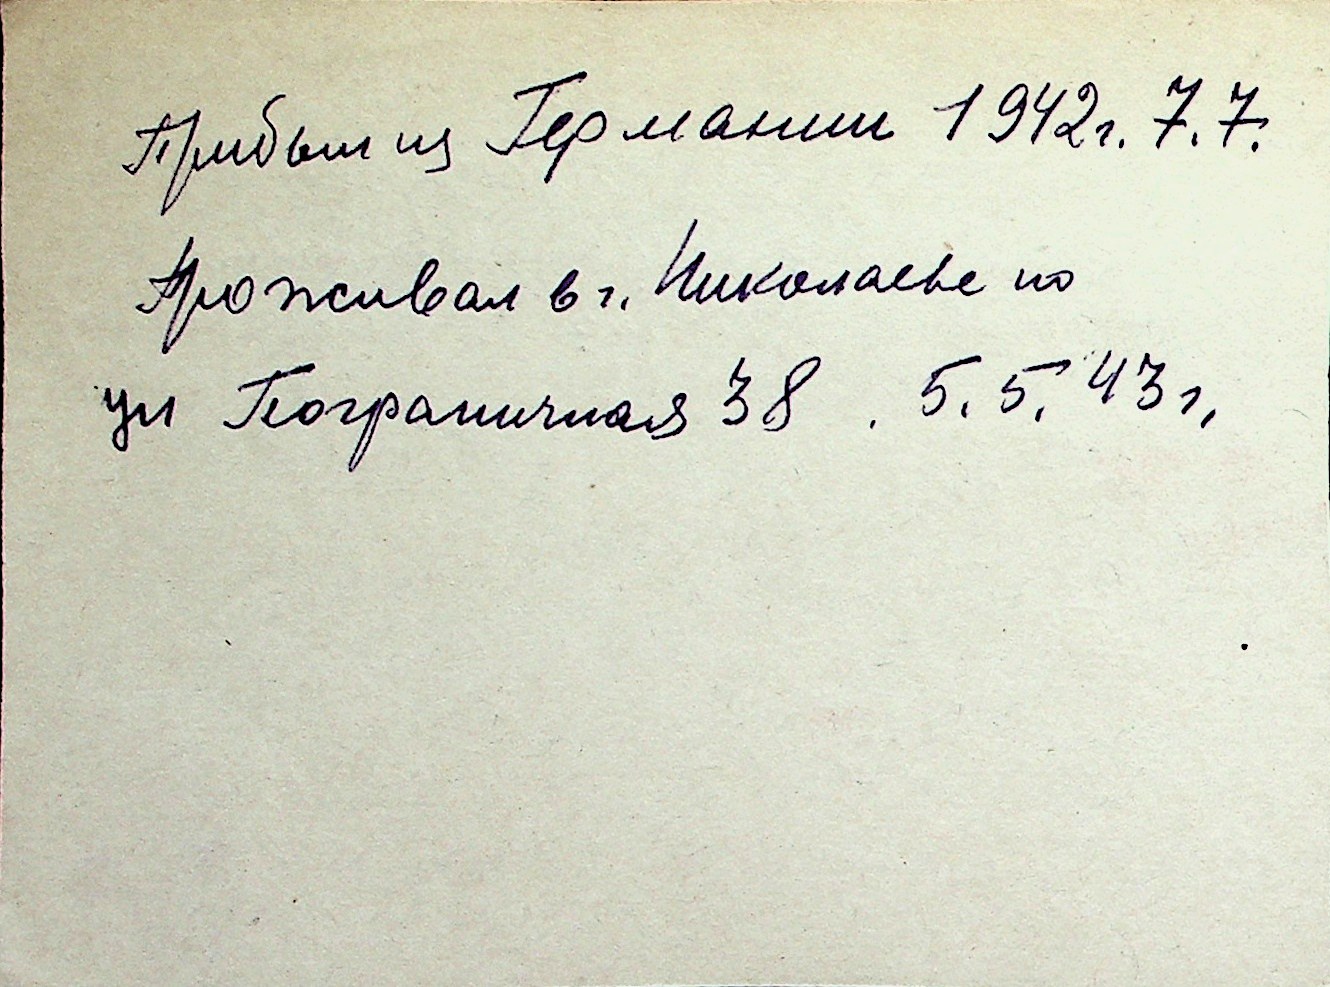 Прибыл из Германии 1942г. 7.7.
Проживал в г. Николаеве по
ул Пограничная 38 . 5.5.43г.